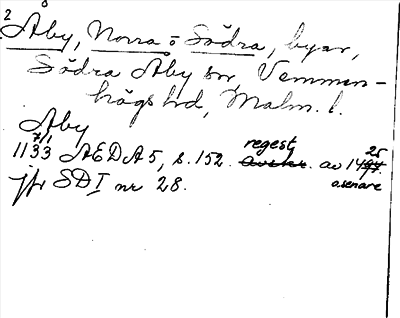 2
Åby, Norra o Södra, byar,
Södra Åby sn, Vemmen-
högs hd, Malm. l.
Åby
7/1
1133 AEDA 5, s. 152. regest av 1425
o senare
jfr SD I nr 28.